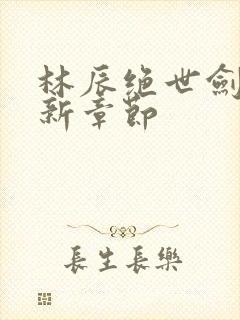 林辰绝世劍
新章節
長生長樂